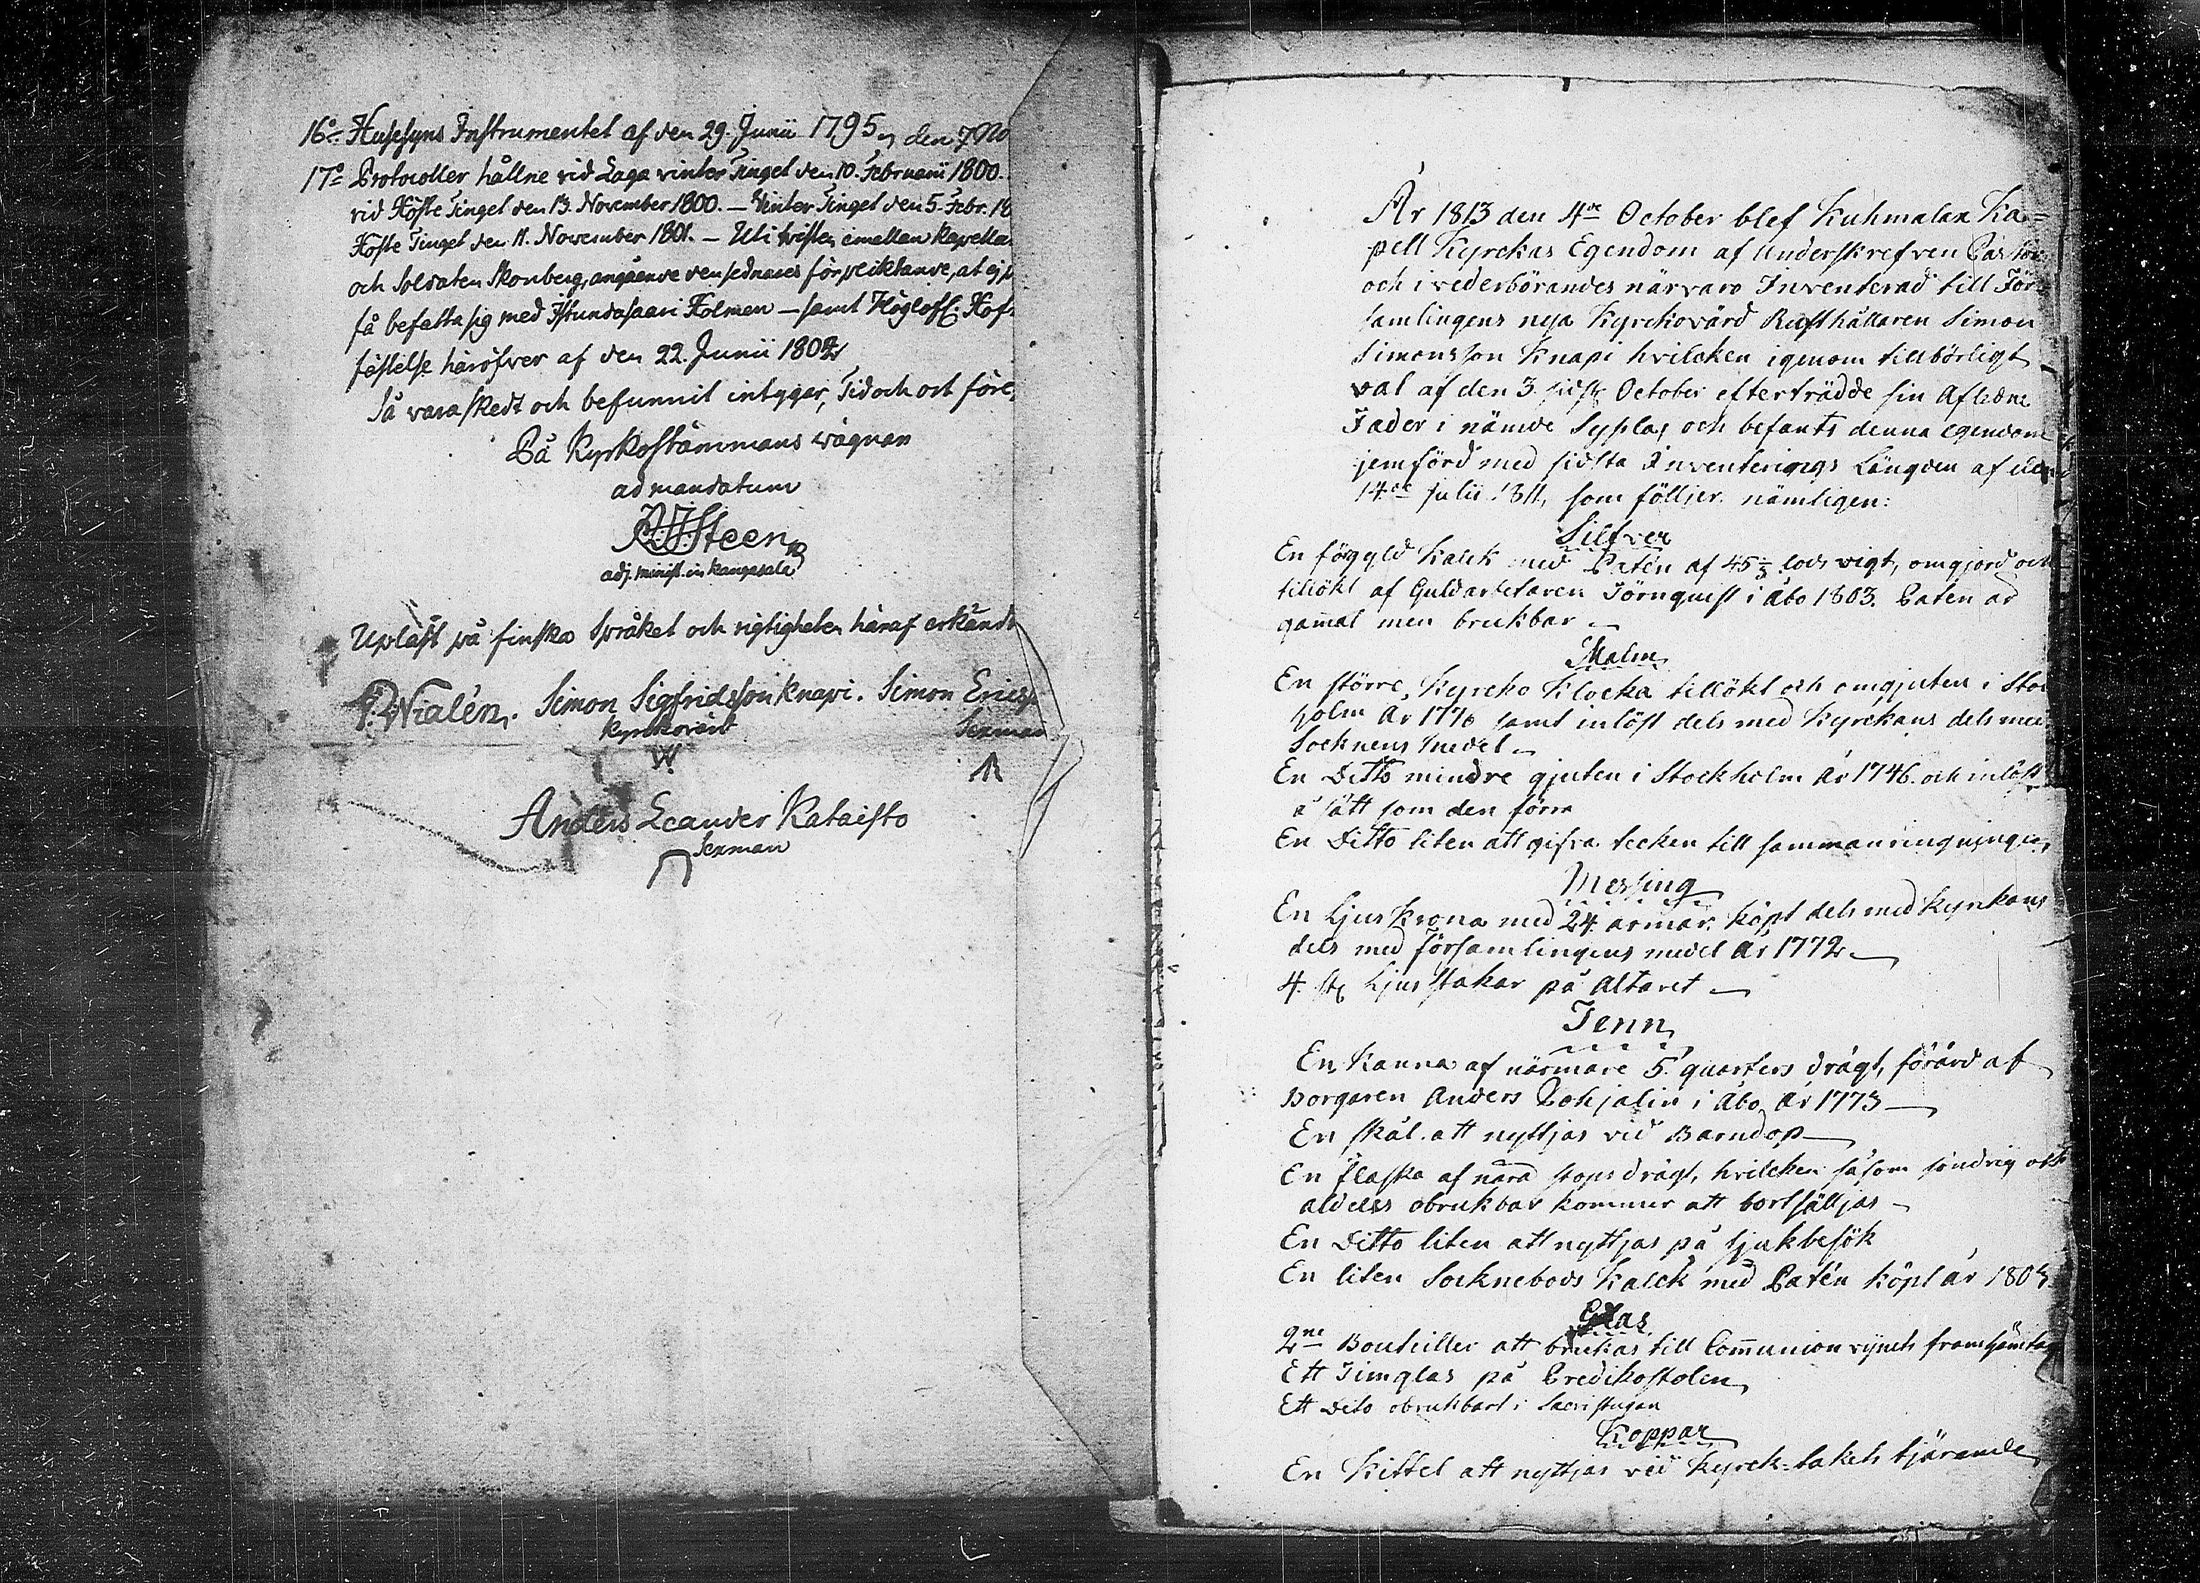 16:o Hussyns Instrumentet af den 29. Junii 1795, den 7 No
17:o Protocoller hållne vid Laga vinter Tinget den 10. Februarii 1800.
vid Höste Tinget den 13. November 1800. – Vinter Tinget den 5. Febr. 18
Höste Tinget den 11. November 1801. – Uti tvisten emellan Kapella
och Soldaten Skonberg, angående den sednares förpliktande, at ej
få befatta sig med Istundasaari Holmen – samt Höglofl. Hof
fästelse häröfver af den 22. Junii 1802
Så vara skedt och befunnit intygar, Tid och ort före
På Kyrkostämmans wägnan
ad mandatum
Steen
adj. minist. in Kangasala
Upläst på finska Språket och rigtigheten häraf erkänd
Wialén. Simon Sigfridsson Knapi. Simon Erics
Kyrkovärd Sexman
Anders Leander Kataisto
Sexman
År 1813 den 4de October blef Kuhmalax Ka=
pell Kyrckas Egendom af Underskrefven Pastor
och i vederbörandes närvaro Inventerad till För=
samlingens nya Kyrckovärd Rusthållaren Simon
Simonsson Knapi hvilcken igenom tillbörligt
val af den 3. sidstl. October efterträdde sin Afledne
Fader i nämde Syssla, och befants denna egendom
jemförd med sidsta Inventerings Längden af den
14de Julii 1811, som följer nämligen:
Silfver
En förgyld Kalck med Patén af 45 lods vigt, omgjord och
tillökt af Guldarbetaren Törnquist i Åbo 1803. Paten är
gammal men brukbar –
Malm
En större, Kyrcko Klocka tillökt och omgjuten i Stoc
holm År 1776 samt inlöst dels med Kyrckans dels med
Socknens medel –
En Ditto mindre gjuten i Stockholm År 1746. och inlöst
å sätt som den förra
En Ditto liten att gifva tecken till sammanringningen,
Messing
En Ljus Krona med 24. armar. köpt dels med Kyrckans
dels med församlingens medel År 1772 –
4. st. Ljus stakar på Altaret –
Tenn
En Kanna af närmare 5. quarters drägt, förärd af
Borgaren Anders Lohjalin i Åbo År 1773 –
En skål. att nyttjas vid Barndop –
En flaska af nära stops drägt, hvilcken såsom söndrig och
aldeles obrukbar kommer att bortsälljas –
En Ditto liten att nyttjas på Sjukbesök
En liten Socknebods Kalck med Patén köpt år 1803
Glas
2ne Bouteiller att brukas till Communion vynets framhämtan
Ett Timglas på Predikostolen
Ett Dito obrukbart i Sacristugan
Koppar
En Kittel att nyttjas vid Kyrck=takets tjärande